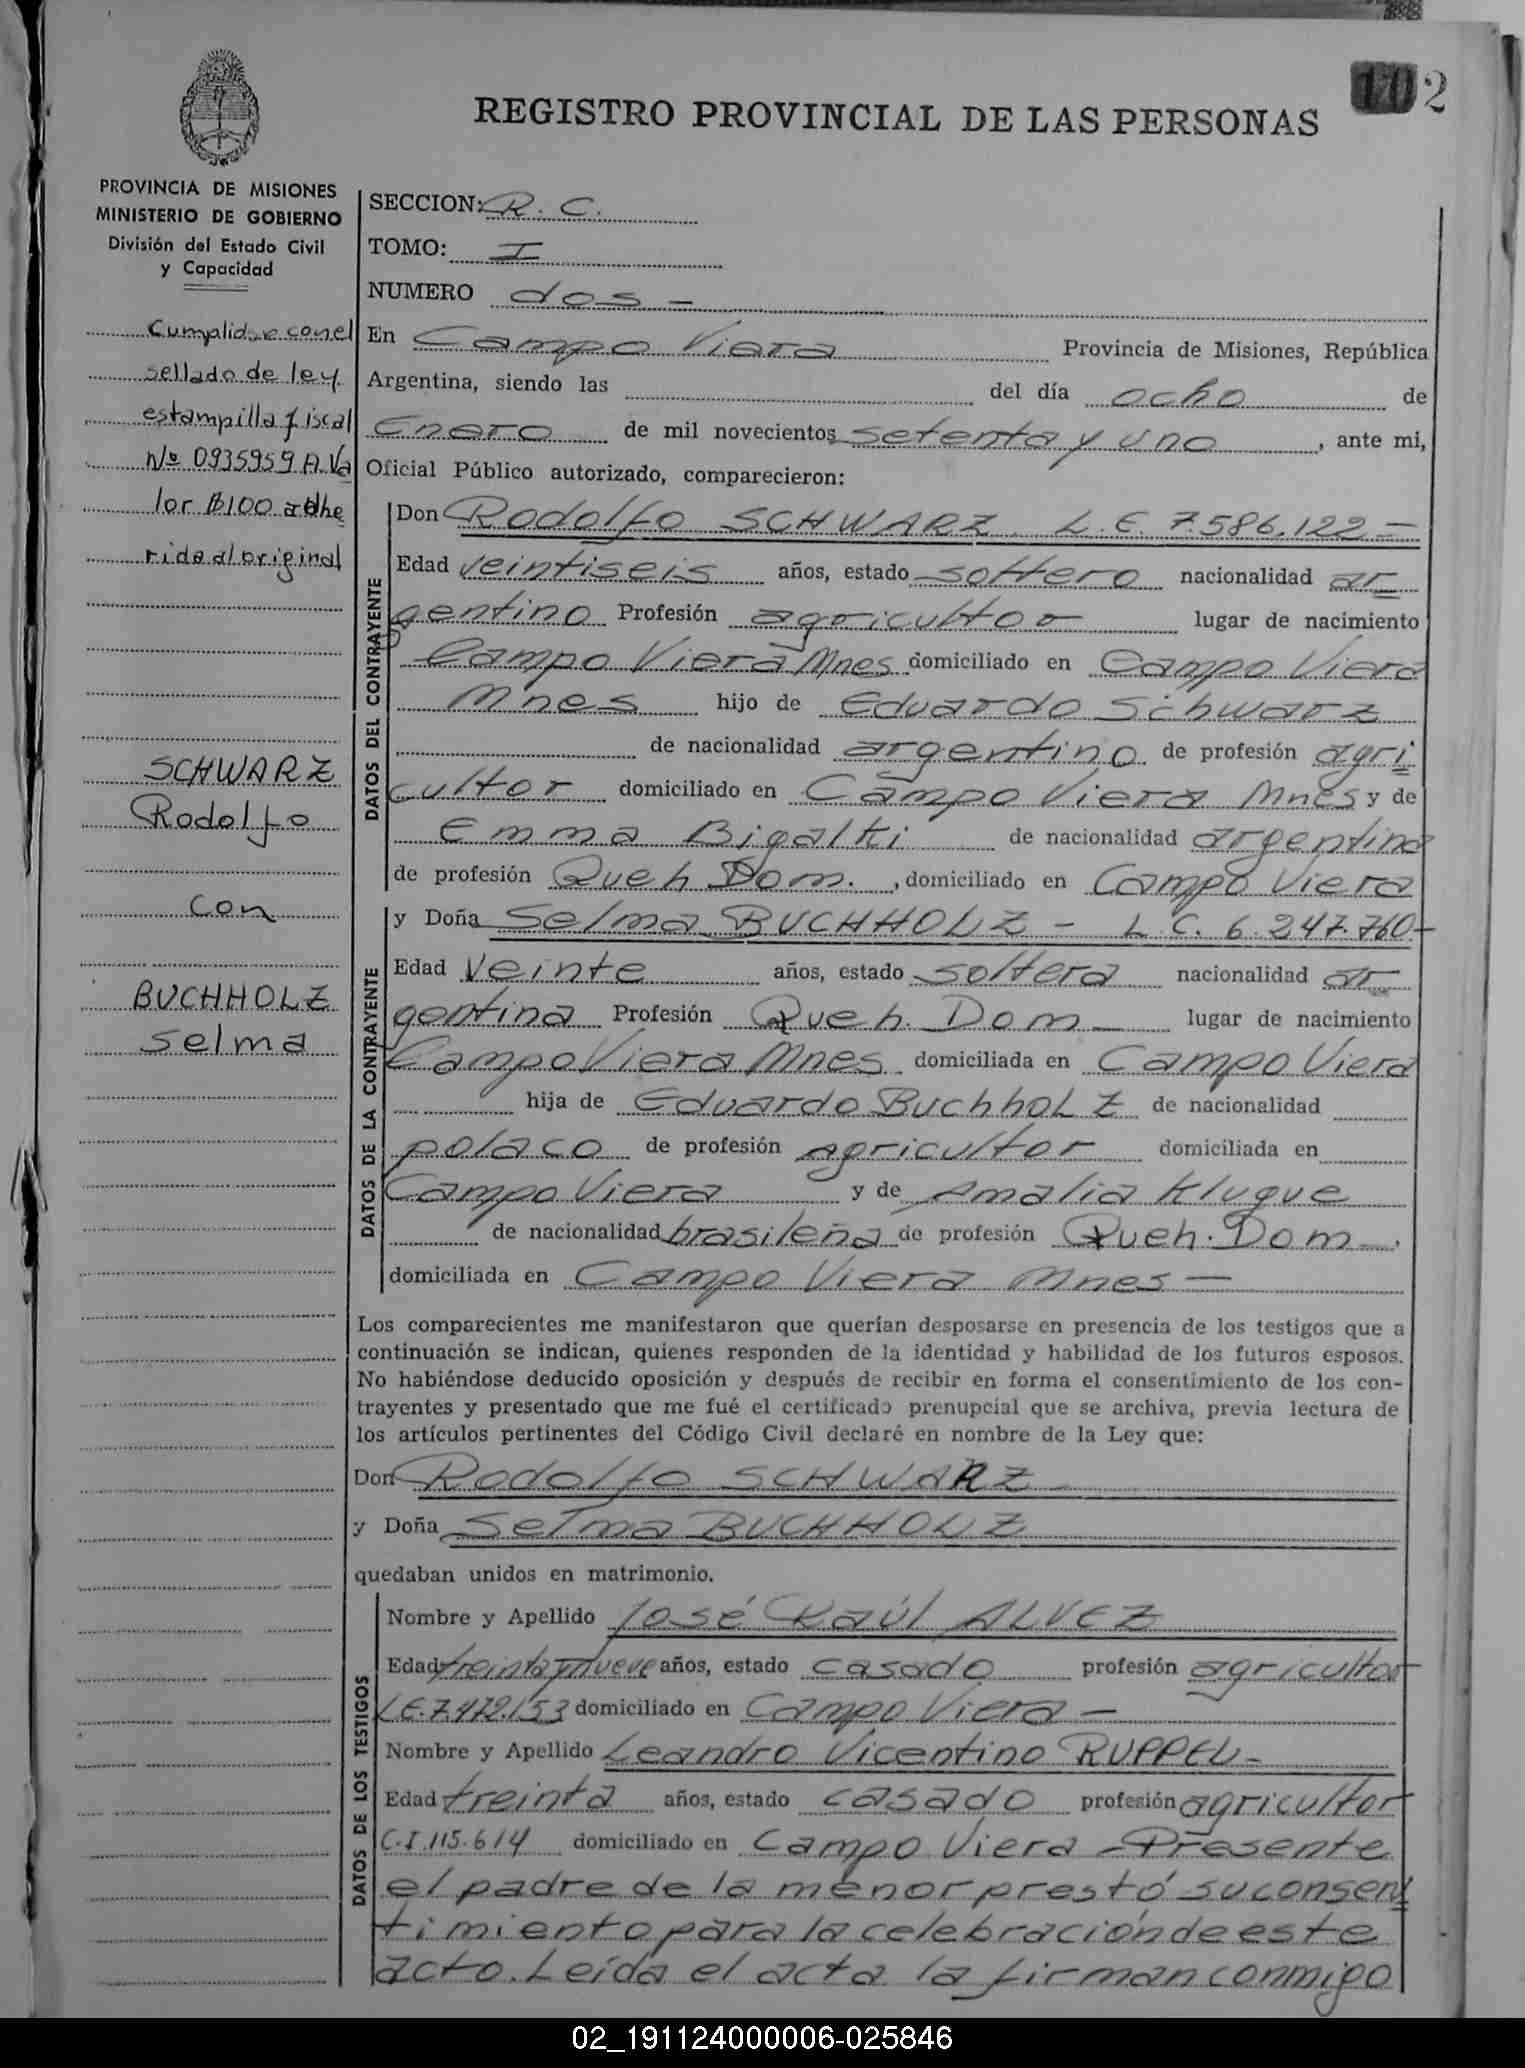 102
REGISTRO PROVINCIAL DE LAS PERSONAS
PROVINCIA DE MISIONES
MINISTERIO DE GOBIERNO
División del Estado Civil
y Capacidad
Cumplidose con el
sellado de ley
estampilla fiscal
Nº 0935959 A Va
lor $100 adhe
rida al original
SCHWARZ
Rodolfo
con
BUCHHOLZ
Selma
SECCION: R. C.
TOMO: I
NUMERO dos -
En Campo Viera Provincia de Misiones, República
Argentina, siendo las del día ocho de
Enero de mil novecientos setenta y uno, ante mi,
Oficial Público autorizado, comparecieron:
DATOS DEL CONTRAYENTE
Don Rodolfo SCHWARZ L. E. 7.586.122 -
Edad veintiseis años, estado soltero nacionalidad ar
gentino Profesión agricultor lugar de nacimiento
Campo Viera Mnes domiciliado en Campo Viera
Mnes hijo de Eduardo Schwarz
de nacionalidad argentino de profesión agri
cultor domiciliado en Campo Viera Mnes y de
Emma Bigalki de nacionalidad argentina
de profesión Queh Dom., domiciliado en Campo Viera
DATOS DE LA CONTRAYENTE
y Doña Selma BUCHHOLZ - L. C. 6.247.760 -
Edad veinte años, estado soltera nacionalidad ar
gentina Profesión Queh. Dom lugar de nacimiento
Campo Viera Mnes domiciliada en Campo Viera
hija de Eduardo BuchhoLZ de nacionalidad
polaco de profesión agricultor domiciliada en
Campo Viera y de Amalia Klugue
de nacionalidad brasileña de profesión Queh. Dom,
domiciliada en Campo Viera Mnes -
Los comparecientes me manifestaron que querían desposarse en presencia de los testigos que a
continuación se indican, quienes responden de la identidad y habilidad de los futuros esposos.
No habiéndose deducido oposición y después de recibir en forma el consentimiento de los con-
trayentes y presentado que me fué el certificado prenupcial que se archiva, previa lectura de
los artículos pertinentes del Código Civil declaré en nombre de la Ley que:
Don Rodolfo SCHWARZ -
y Doña Selma BUCHHOLZ
quedaban unidos en matrimonio.
DATOS DE LOS TESTIGOS
Nombre y Apellido José Raúl ALVEZ
Edad treinta y nueve años, estado casado profesión agricultor
L E. 7.472.153 domiciliado en Campo Viera -
Nombre y Apellido Leandro Vicentino RUPPEL -
Edad treinta años, estado casado profesión agricultor
C.I. 115.614 domiciliado en Campo Viera - Presente
el padre de la menor prestó su consen
timiento para la celebración de este
acto. Leída el acta la firman conmigo
02_191124000006-025846